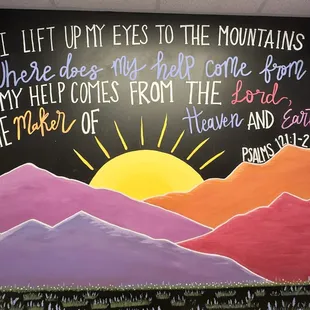 I LIFT UP MY EYES TO THE MOUNTAINS
Where does my help come from
MY HELP COMES FROM THE Lord,
HE Maker OF Heaven AND Eart
PSALMS 121:1-2